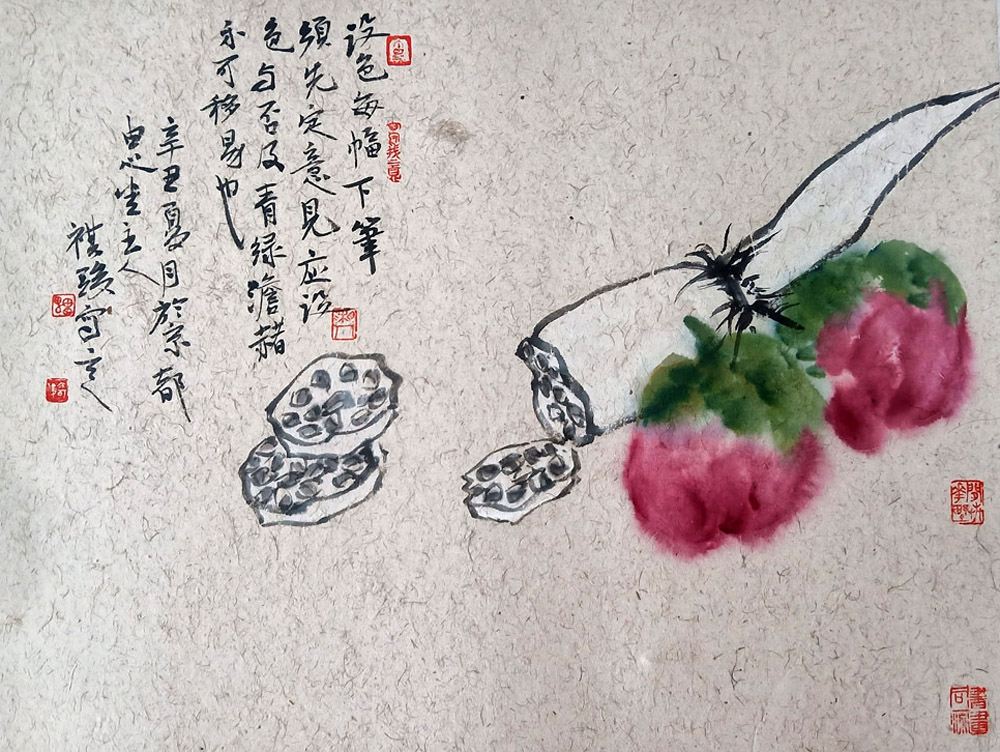 设色每幅下筆
須先定意見应设
色与否及青绿澹赭
不可移易也
辛丑夏月於京都
主人
写之
書畫
同源